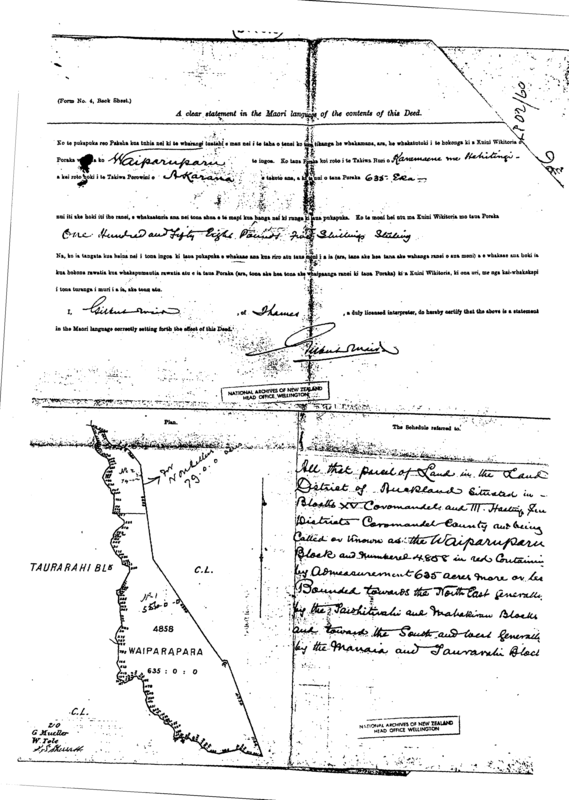 (Form No. 4, Back Sheet.)
A clear statement in the Maori language of the contents of this Deed.
Ko te pukapuka reo Pakeha kua tuhia nei ki te wharangi tuatahi e mau nei i te taha o tenei ko tikanga he whakamana, ara, he whakatutuki i te hokonga ki a Kuini Wikitoria
Poraka ko Waiparuparu te ingoa. Ko taua Poraka kei roto i te Takiwa Ruri o
a kei roto hoki i te Takiwa Porowini o Akarana e takoto ana, a nui o taua Poraka 635 Eka
nui iti ake hoki iti iho ranei, e whakaaturia ana nei tona ahua a te mapi kua hanga nei ki runga i taua pukapuka. Ko te moni hei utu ma Kuini Wikitoria mo taua Poraka
One Hundred and Fifty Eight Pounds Shillings Sterling
Na, ko ia tangata kua haina nei i tona ingoa ki taua pukapuka e whakaae ana kua riro atu tana i a ia (ara, tana ake hea tana ake wahanga ranei o aua moni) a e whakaae ana hoki ia
kua hokona rawatia kua whakapumautia rawatia atu e ia taua Poraka (ara, tona ake hea tona ake wahanga ranei ki taua Poraka) ki a Kuini Wikitoria, ki ona uri, me nga kai-whakakapi
i tona turanga i muri i a ia, ake tonu atu.
I, of Thames, a duly licensed interpreter, do hereby certify that the above is a statement
in the Maori language correctly setting forth the effect of this Deed.
NATIONAL ARCHIVES OF NEW ZEALAND
HEAD OFFICE WELLINGTON
Plan.
79.0.0
TAURARAHI BLK
C.L.
No 1
4858
WAIPARAPARA
635 : 0 : 0
C.L.
G Mueller
W Tole
The Schedule referred to.
All that parcel of Land in the Land
District of Auckland Situated in
Blocks XV Coromandel and III Hastings
Districts Coromandel County and being
Called or Known as the Waiparuparu
Block and numbered 4858 in red Containing
by Admeasurement 635 acres more or less
Bounded towards the North East Generally
by the and Blocks
and towards the South and West Generally
by the Manaia and Taurarahi Block
NATIONAL ARCHIVES OF NEW ZEALAND
HEAD OFFICE WELLINGTON